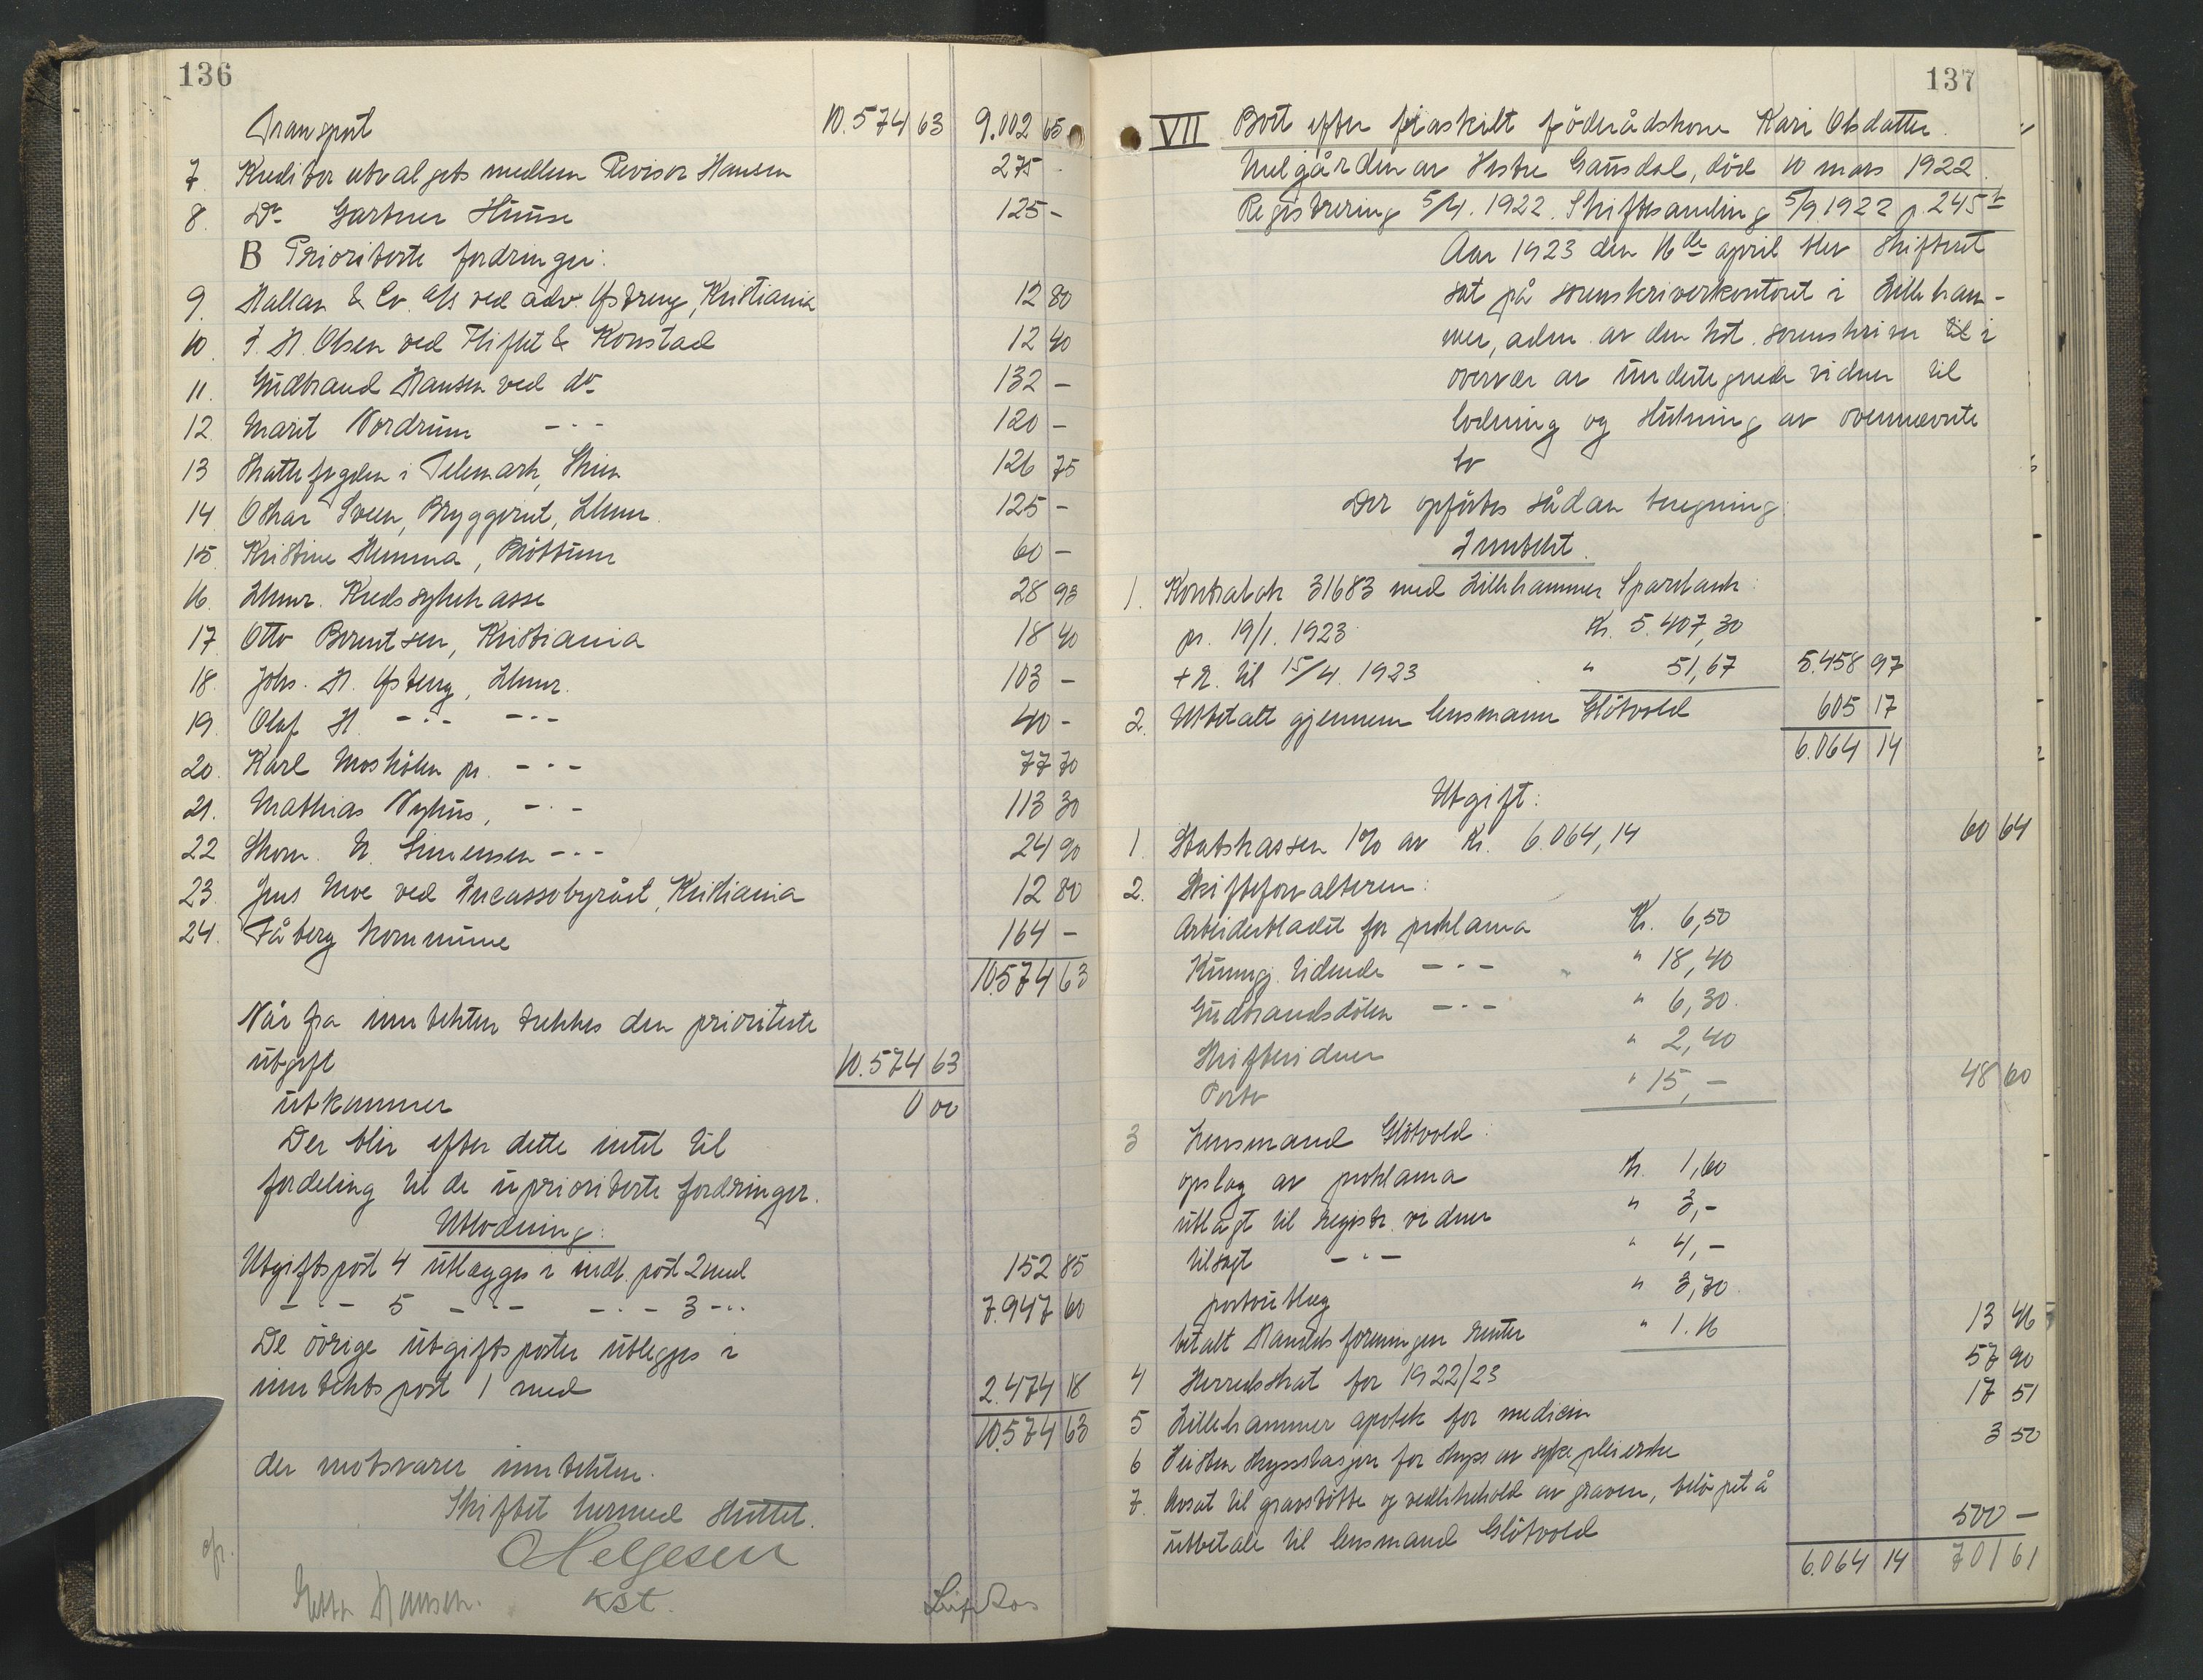 136
Transport 10.574 63 9.002 65
7. Kreditorutvalgets medlem Revisor Hansen 275 -
8. Do Gartner Huuse 125 -
B Prioriterte fordringer:
9. Hallan & Co. A/s ved adv. Ystreng, Kristiania 12 80
10. J. H. Olsen ved Fliflet & Konstad 12 40
11. Gudbrand Hansen ved do 132 -
12. Marit Nordrum - " - 120 -
13 Skattefogden i Telemark, Skien 126 75
14 Oskar Sveen, Bryggeriet, Lhmr. 125 -
15. Kristine Hemma, Bröttum 60 -
16. Lhmr. Kredssykekasse 28 93
17. Otto Berentsen, Kristiania 18 40
18. Johs. H. Ysberg, Lhmr. 103 -
19. Olaf H. - " - - " - 40 -
20. Karl Moshölen pr. - " - 77 70
21. Mathias Nyhus, - " - 113 30
22 Skom. N. Simensen - " - 24 90
23. Jens Moe ved Incassobyrået, Kristiania 12 80
24. Fåberg kommune 164 -
10.574 63
Når fra inntekten trekkes den prioriterte
utgift 10.574 63
utkommer 0 00
Der blir efter dette intet til
fordeling til de uprioriterte fordringer.
Utlodning:
Utgiftspost 4 utlægges i indt. post 2 med 152 85
- " - 5 - " - - " - 3 - " - 7.947 60
De övrige utgiftsposter utlegges i
inntektspost 1 med 2.474 18
10.574 63
der motsvarer inntekten.
Skiftet hermed sluttet.
OHelgesen
kst.
Hansen. Leif Aas
137
VII Boet efter fraskilt föderådskone Kari Olsdatter
Nelgården av Vestre Gausdal, död 10 mars 1922.
Registrering 5/4. 1922. Skiftesamling 5/9 1922 p. 245 b
Aar 1923 den 16de april blev skifteret
sat på sorenskriverkontoret i Lilleham-
mer, adm. av den kst. sorenskriver til i
overvær av undertegnede vidner til
lodning og slutning av ovennævnte
bo
Der opförtes sådan beregning:
Inntekt.
1. Kontrabok 31683 med Lillehammer Sparebank:
pr. 19/1. 1923 Kr. 5.407,30
+ R. til 15/4. 1923 " 51,67 5.458 97
2. Utbetalt gjennem lensmann Glötvold 605 17
6.064 14
Utgift:
1. Statskassen 1% av Kr. 6.064,14 60 64
2. Skifteforvalteren:
Arbeiderbladet for proklama Kr. 6,50
Kunngj. tidende - " - " 18,40
Gudbrandsdölen - " - " 6,30.
Skiftevidner " 2,40
Porto " 15,- 48 60
3 Lensmand Glötvold:
opslag av proklama Kr. 1,60
utlagt til registr. vidner " 3,-
tilsagt - " - " 4,-
portoutlæg " 3,70.
betalt Handelsforeningen renter " 1.16 13 46
4 Herredskat for 1922/23 57 90
5 Lillehammer apotek for medicin 17 51
6 skysstasjon for skyss av sykepleierske 3 50
7. Avsat til gravstötte og vedlikehold av graven, belöpet å
utbetale til lensmand Glötvold 500 -
6.064 14 701 61